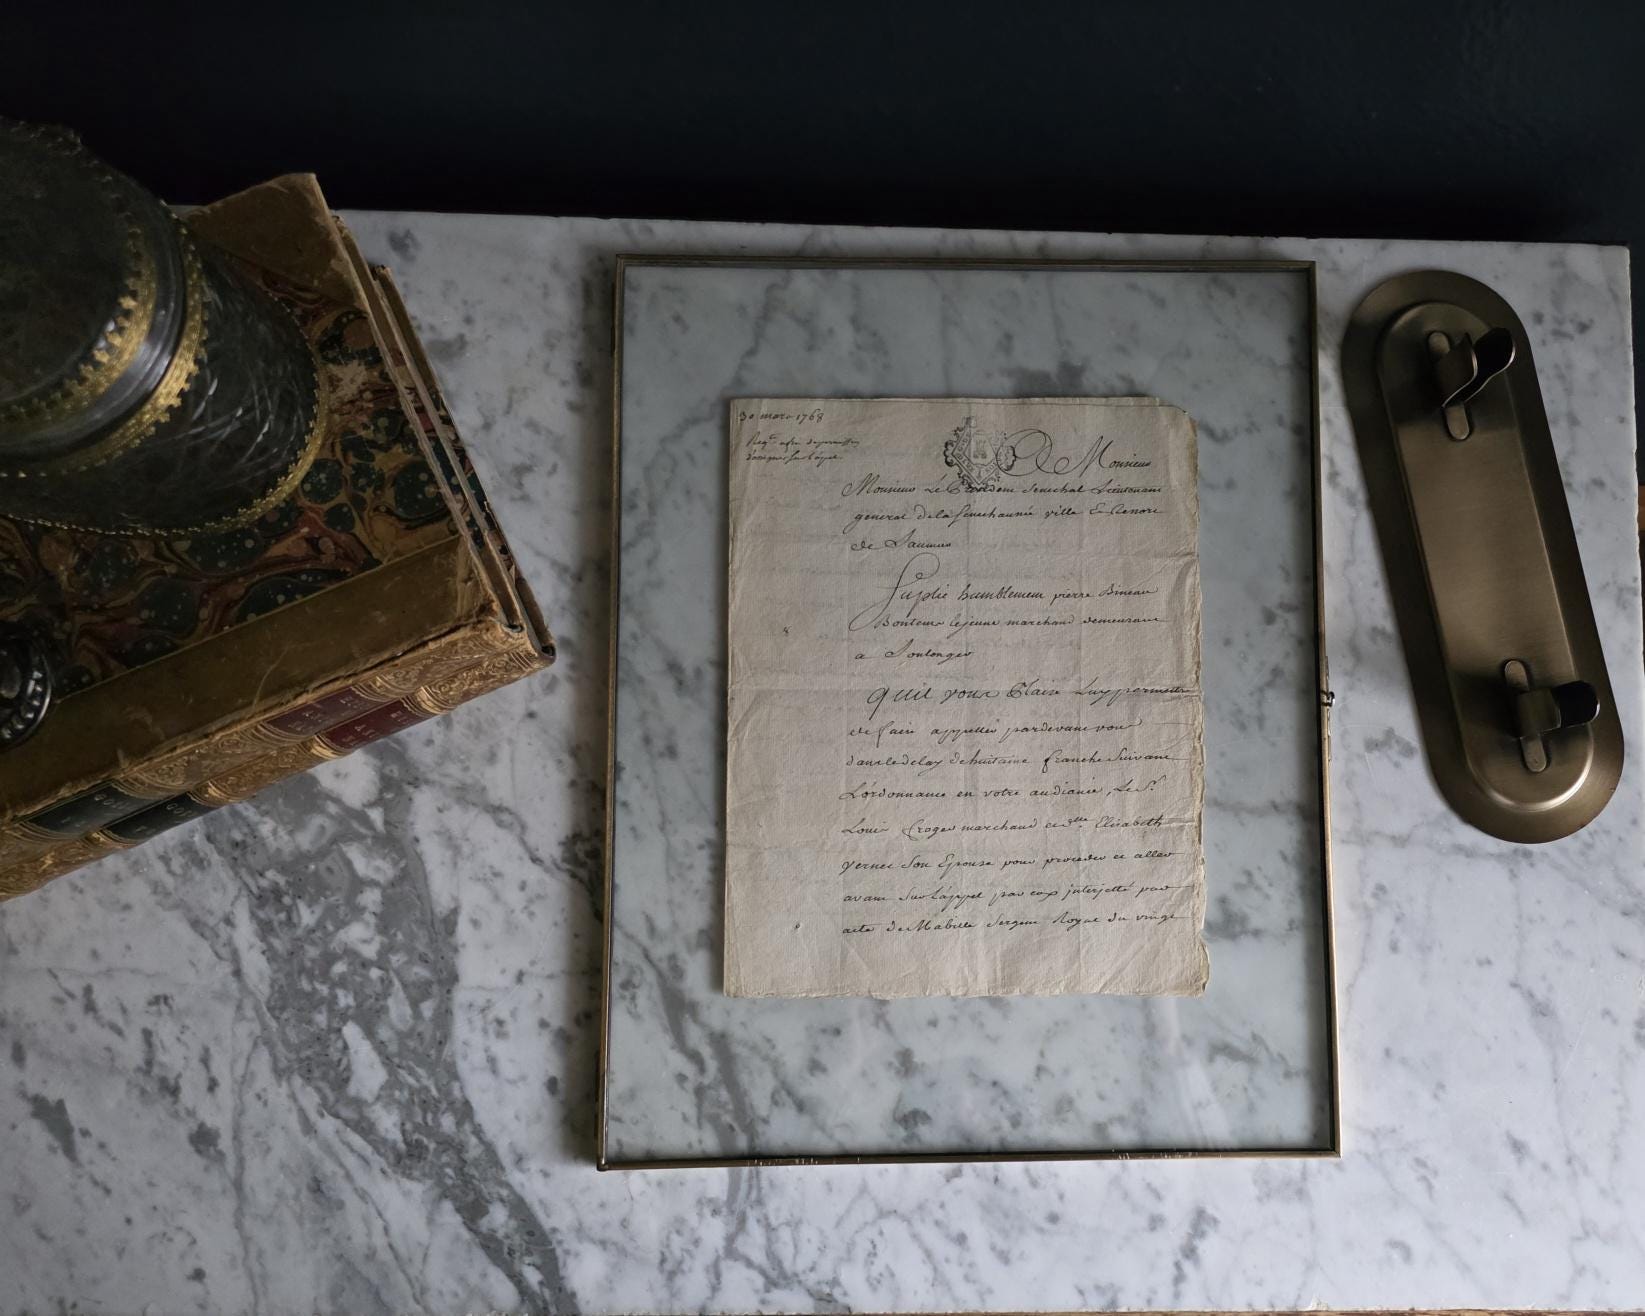 30 mars 1768
Reqte afin de permission
d'assigner sur l'apel
A Monsieur
Monsieur Le President Senechal Lieutenant
general de la Senechaussée ville &
de Saumur
Suplie humblement pierre Bineau
Bontems lejeune marchand demeurant
a Soulanger
quil vous Plaise Luy permettre
de faire appeller pardevant vous
dans le delay de huitaine franche Suivant
L'ordonnance en votre audiance, Le Sr
Louis marchand et dlle Elisabeth
vernet Son Epouse pour proceder et aller
avant Sur L'appel par eux interjetté par
acte de Mabille Sergent Royal du vingt